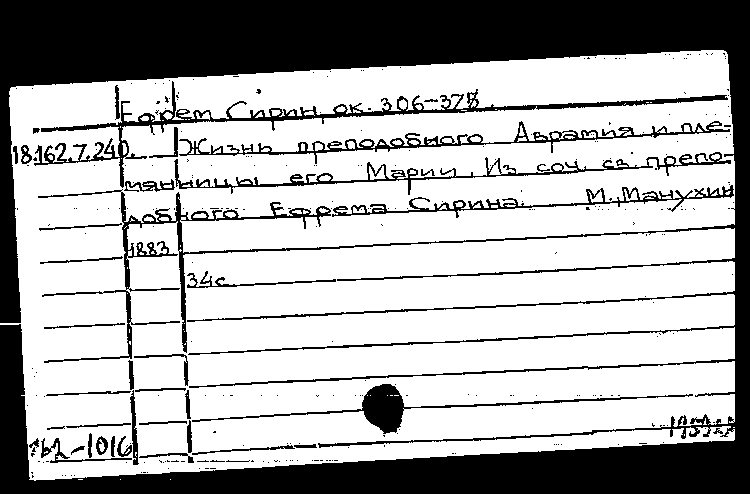 Ефрем Сирин, ок. 306-378.
18.162.7.240. Жизнь преподобного Аврамия и пле-
мянницы его Марии. Из соч. св. препо-
добного Ефрема Сирина. М., Манухин
1883
34с.
-1016